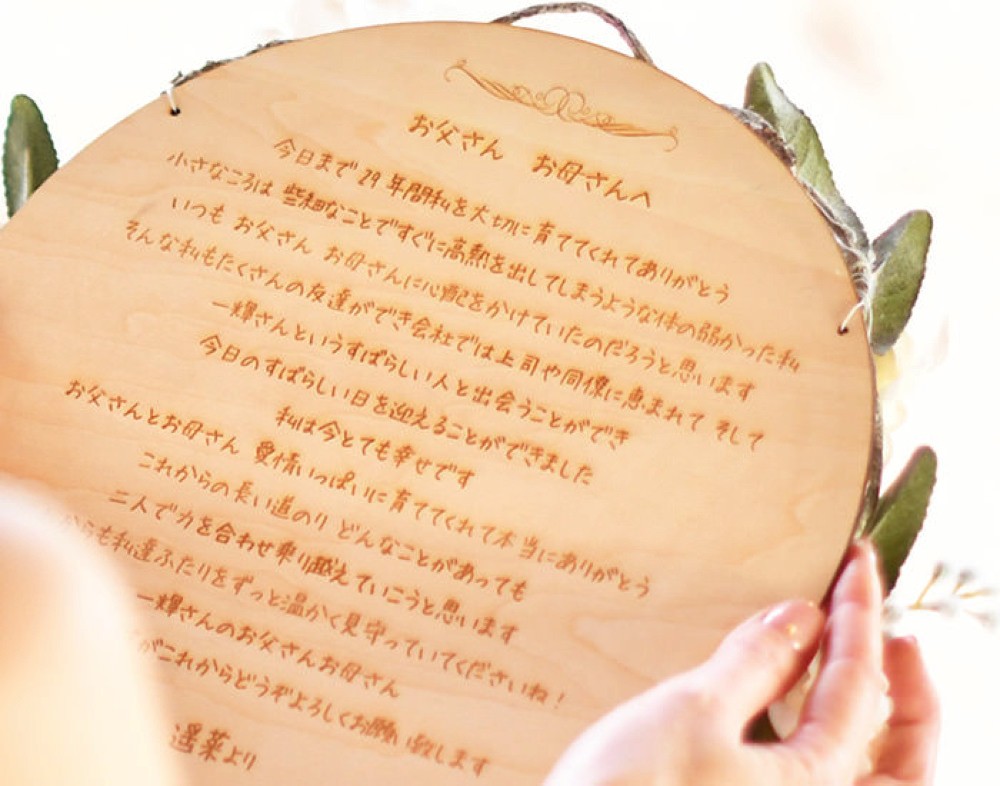 お父さん お母さんへ
今日まで29年間私を大切に育ててくれてありがとう
小さなころは 些細なことですぐに高熱を出してしまうような体の弱かった私
いつも お父さん お母さんに心配をかけていたのだろうと思います
そんな私もたくさんの友達ができ会社では上司や同僚に恵まれて そして
一輝さんというすばらしい人と出会うことができ
今日のすばらしい日を迎えることができました
私は今とても幸せです
お父さんとお母さん 愛情いっぱいに育ててくれて本当にありがとう
これからの長い道のり どんなことがあっても
二人で力を合わせ乗り越えていこうと思います
からも私達ふたりをずっと温かく見守っていてくださいね！
一輝さんのお父さんお母さん
がこれからどうぞよろしくお願い致します
より